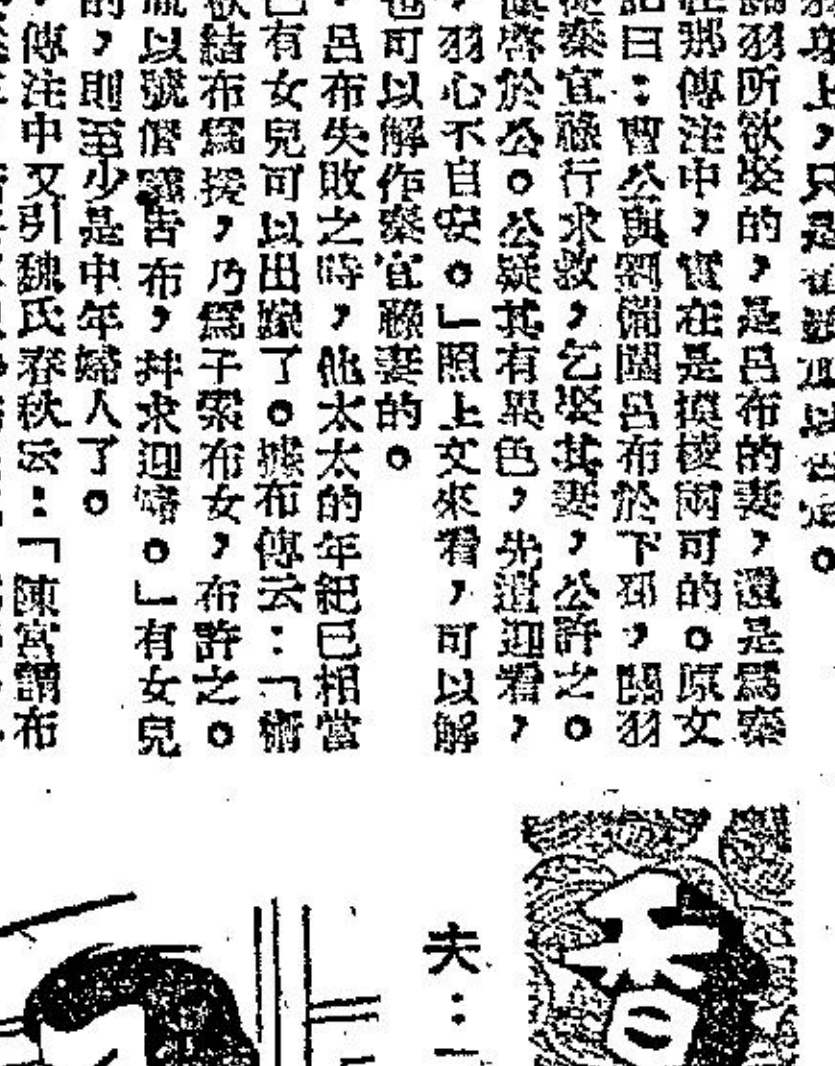 上,只是
關羽所欲娶的,是呂布的妻,還是爲秦
在那傳注中,實在是摸棱兩可的。原文
記曰:曹公與劉備圍呂布於下邳,關羽
秦宜祿行求救,乞娶其妻,公許之。
啓於公。公疑其有異色,先遣迎看,
,羽心不自安。」照上文來看,可以解
也可以解作秦宜祿妻的。
,呂布失敗之時,他太太的年紀已相當
已有女兒可以出嫁了。據布傳云:「術
欲結布爲援,乃爲子索布女,布許之。
以號僭議告布,幷求迎婦。」有女兒
的,則至少是中年婦人了。
,傳注中又引魏氏春秋云:「陳宮謂布
夫: